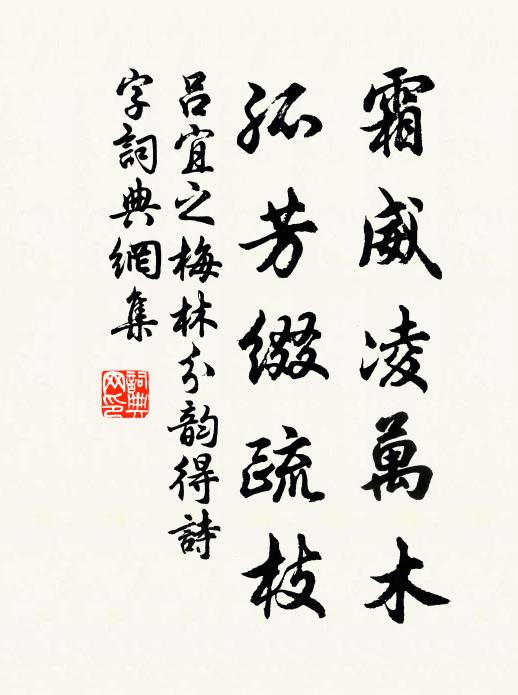 霜威凌萬木
孤芳綴疏枝
呂宜之梅林分韵得詩
字詞典網集
詞典網印